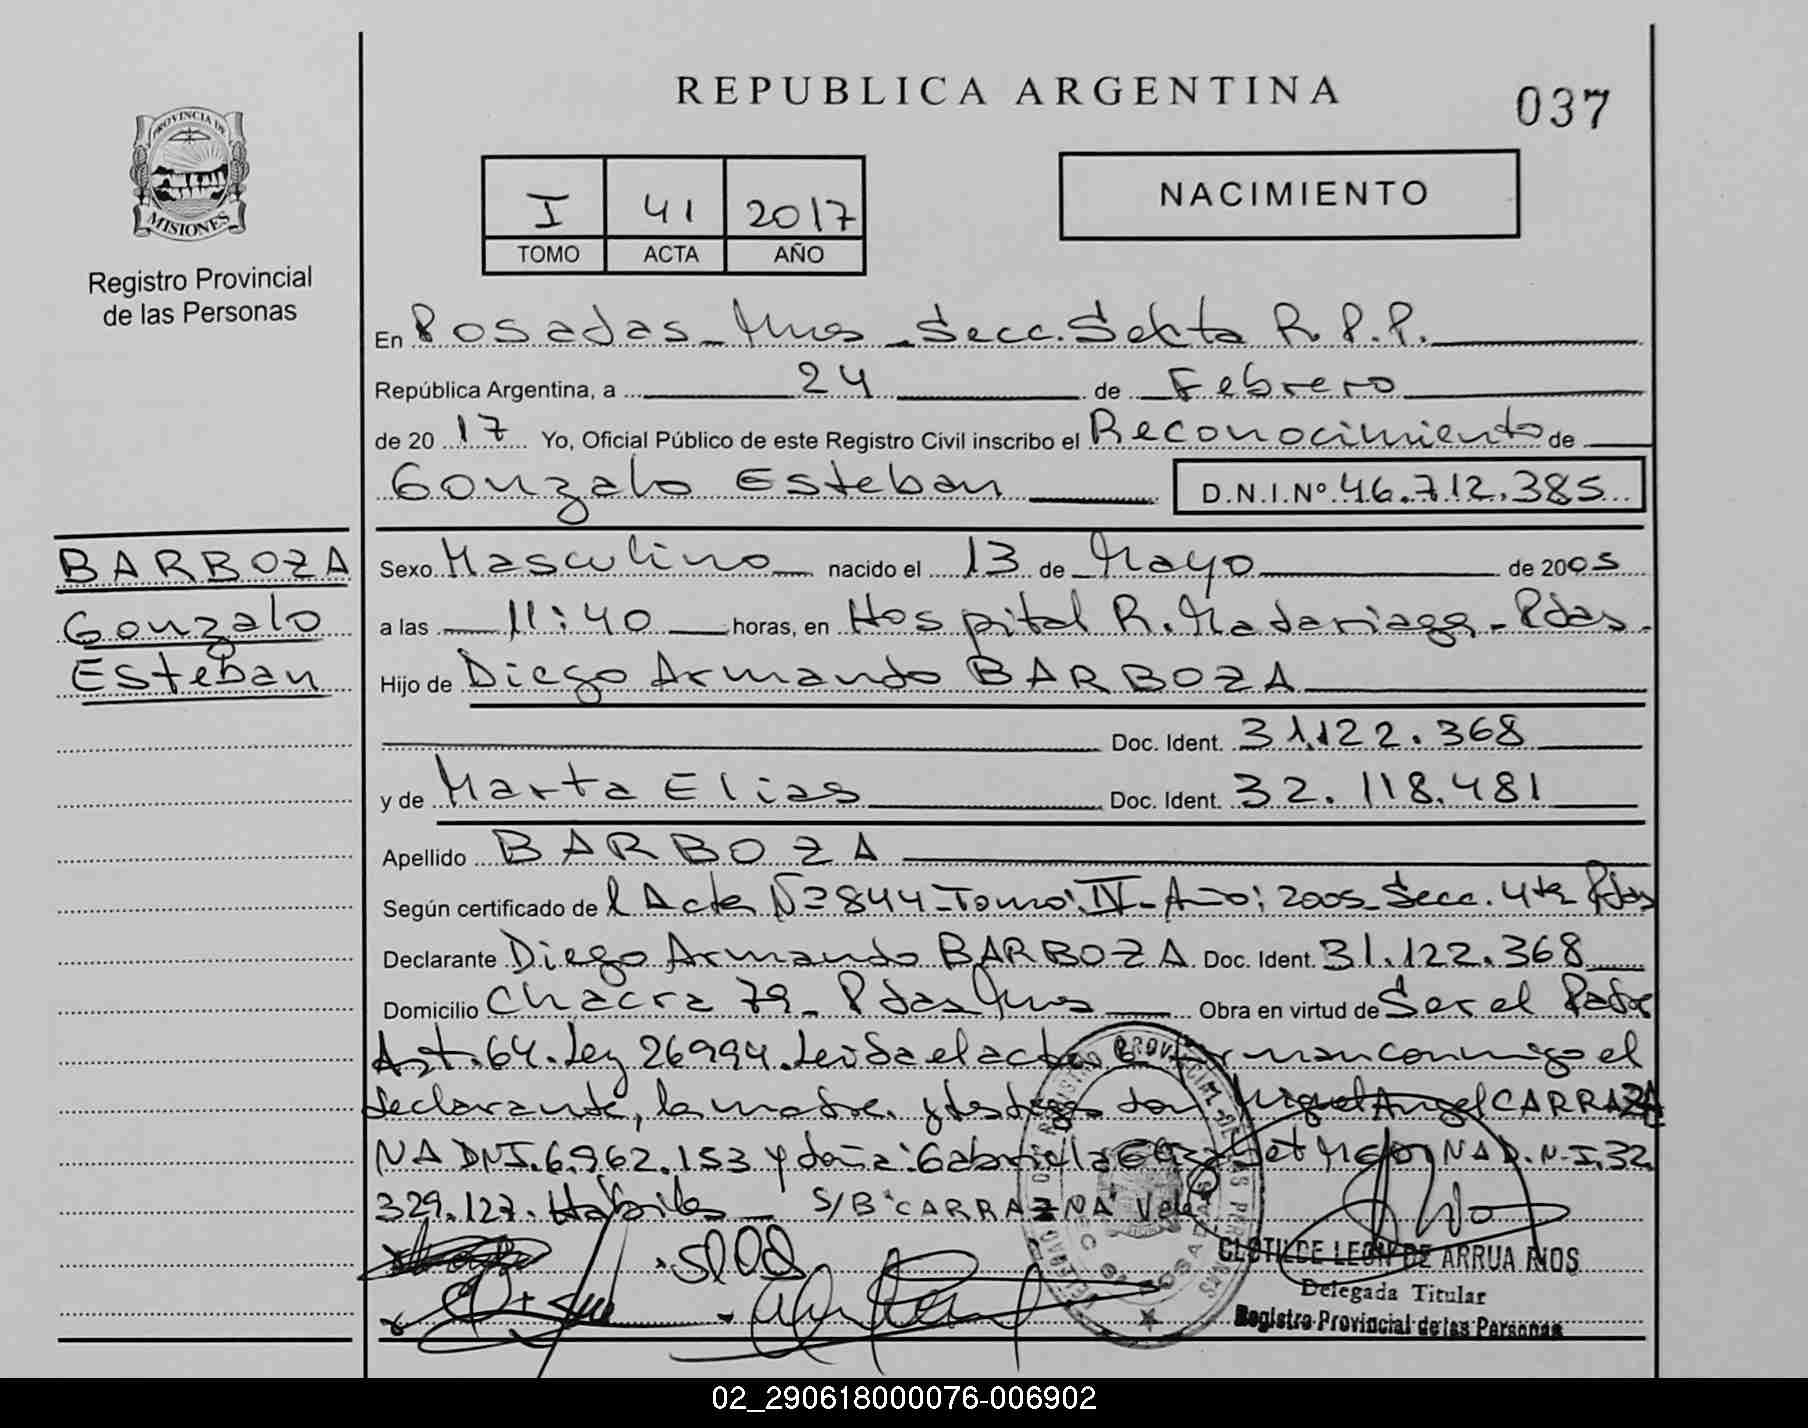 REPUBLICA ARGENTINA
037
PROVINCIA DE
MISIONES
Registro Provincial
de las Personas
I 41 2017
TOMO ACTA AÑO
NACIMIENTO
En Posadas - Mnes - Secc. Sexta R.P.P.
República Argentina, a 24 de Febrero
de 2017 Yo, Oficial Público de este Registro Civil inscribo el Reconocimiento de
Gonzalo Esteban D.N.I.Nº 46.712.385
BARBOZA
Gonzalo
Esteban
Sexo Masculino nacido el 13 de Mayo de 2005
a las 11:40 horas, en Hospital R. Madariaga - Pdas.
Hijo de Diego Armando BARBOZA
Doc. Ident. 31.122.368
y de Marta Elias Doc. Ident. 32.118.481
Apellido BARBOZA
Según certificado del Acta Nº 844 - Tomo: IV - Año: 2005 - Secc. 4ta Pdas
Declarante Diego Armando BARBOZA Doc. Ident. 31.122.368
Domicilio Chacra 79 - Pdas Mnes Obra en virtud de Ser el Padre
Art. 64. Ley 26994. Leida el acta la firman conmigo el
declarante, la madre y testigos don Miguel Angel CARRAZA
NA DNI. 6.962.153 y doña: Gabriela D.N.I. 32.
329.127. Hábiles S/B "CARRAZANA" Vale
CLOTILDE LEON DE ARRUA RIOS
Delegada Titular
Registro Provincial de las Personas
02_290618000076-006902